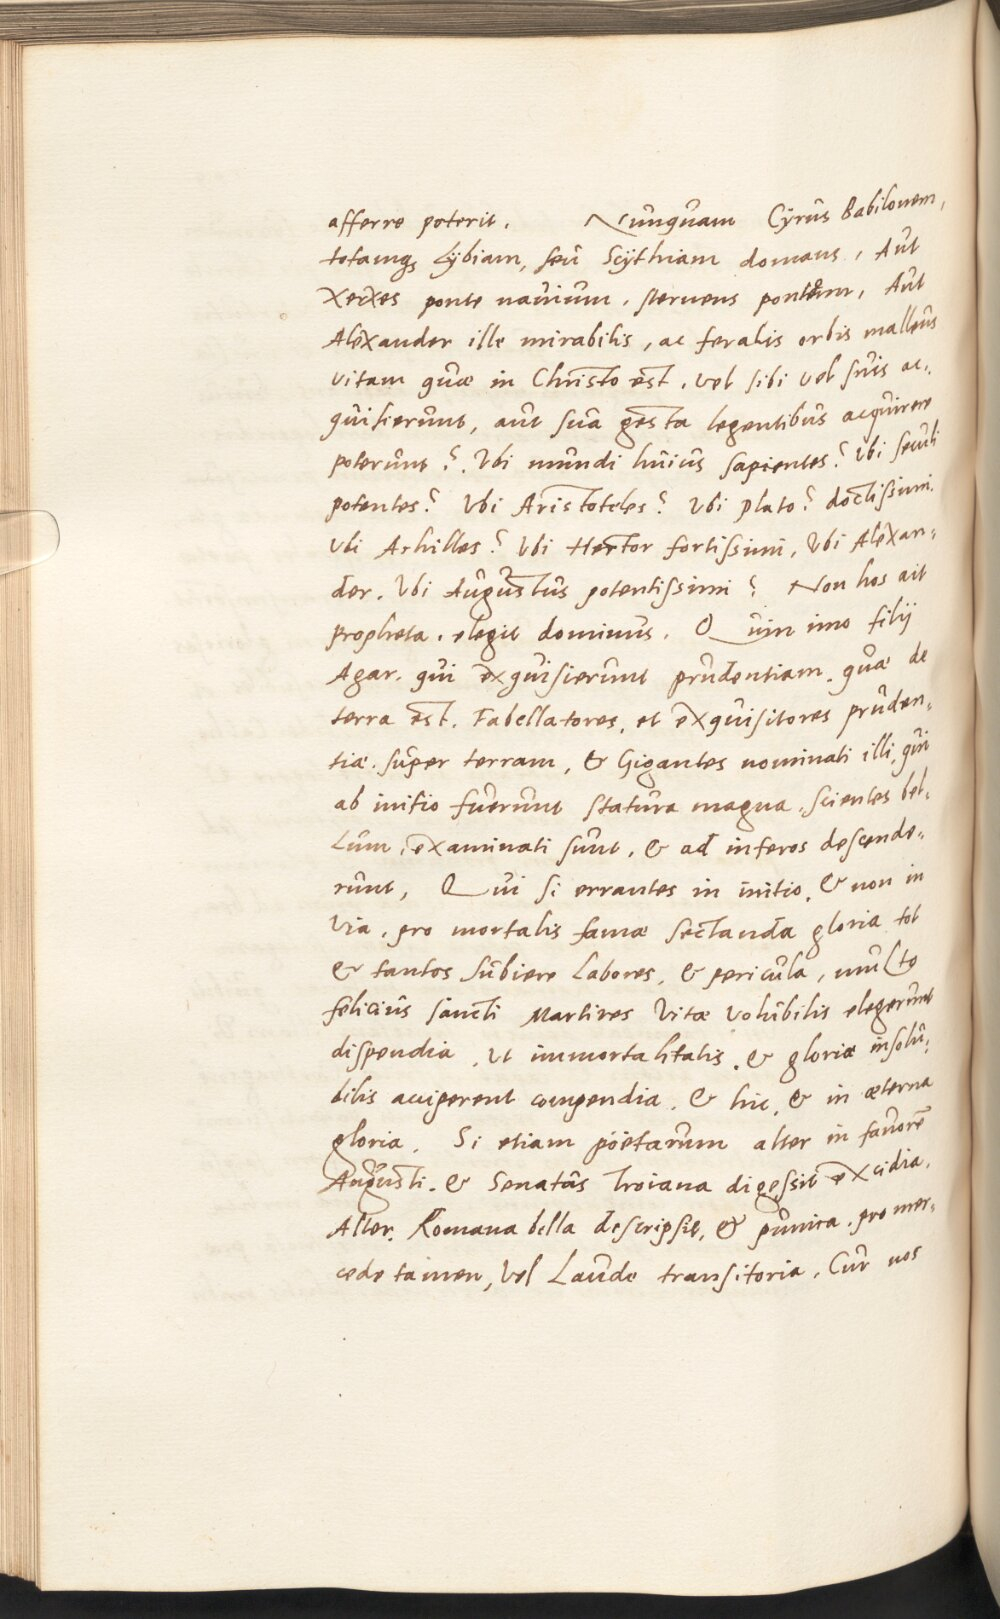 afferre poterit. Nunquam Cyrus Babilonem,
totamq; Lybiam, seu Scythiam domans, Aut
Xerxes ponte navium, sternens pontum, Aut
Alexander ille mirabilis, ac feralis orbis malleus
vitam quæ in Christo est, vel sibi vel suis ac-
quisierunt, aut sua gesta legentibus acquirere
poterunt? Vbi mundi huius sapientes? Vbi seculi
potentes? Vbi Aristoteles? Vbi Plato? doctissimi.
Vbi Achilles? Vbi Hector fortissimi, Vbi Alexan-
der. Vbi Augustus potentissimi? Non hos ait
propheta. elegit dominus. Quin imo filij
Agar. qui exquisierunt prudentiam. quæ de
terra est. Fabellatores, et exquisitores pruden-
tiæ. super terram, & Gigantes nominati illi, qui
ab initio fuerunt statura magna, scientes bel-
lum, examinati sunt, & ad inferos descende-
runt, Qui si errantes in initio, & non in
via, pro mortalis famæ sectanda gloria tot
& tantos subiere labores, & pericula, multo
felicius sancti Martires Vitæ volubilis elegerunt
dispendia, ut immortalitatis, & gloriæ insolu-
bilis acciperent compendia. & hic, & in æterna
gloria. Si etiam pöetarum alter in favorē
Augusti. & Senatus Troiana digessit excidia,
Alter, Romana bella descripsit, & punica, pro mer-
cede tamen, vel Laude transitoria, Cur nos